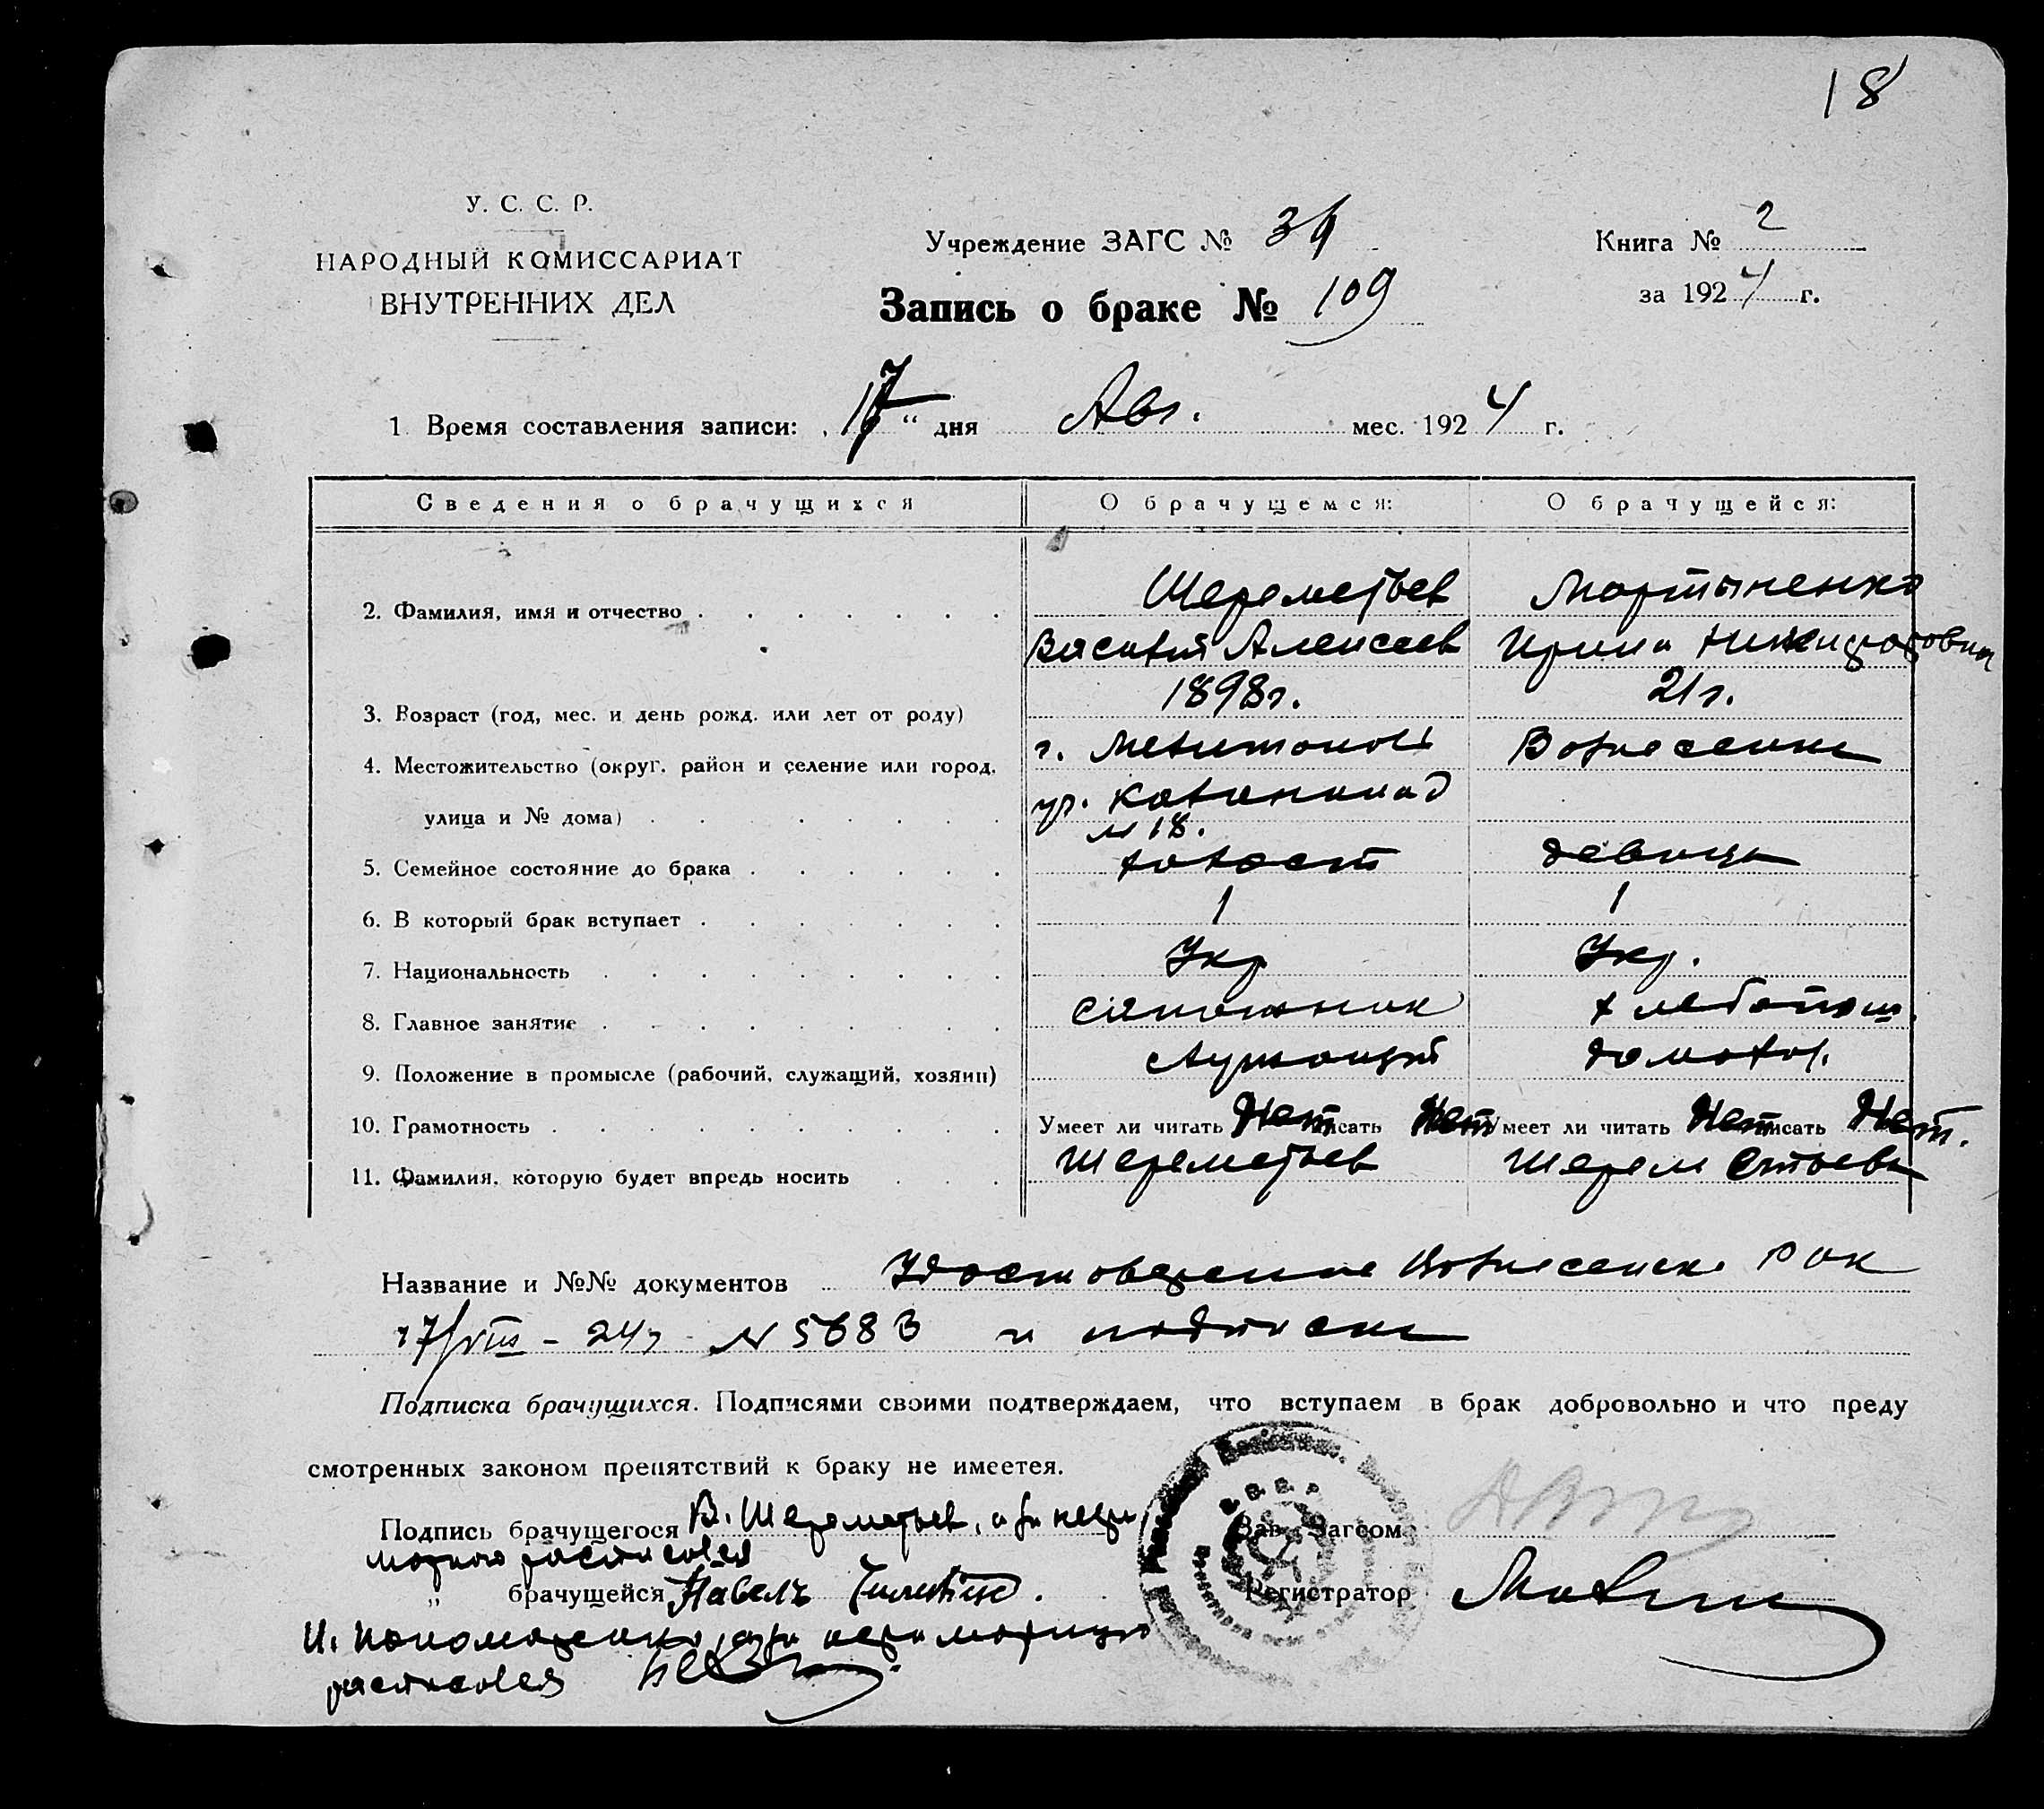 18
У. С. С. Р.
НАРОДНЫЙ КОМИССАРИАТ
ВНУТРЕННИХ ДЕЛ
Учреждение ЗАГС №
Запись о браке № 109
Книга № 2
за 1924 г.
1. Время составления записи: "17" дня Авг. мес. 1924 г.
Сведения о брачущихся О брачущемся: О брачущейся:
2. Фамилия, имя и отчество Шереметьев Мартыненко
Василий Алексеев Ирина
3. Возраст (год, мес. и день рожд. или лет от роду) 1898 г. 21 г.
4. Местожительство (округ, район и селение или город, г. Мелитополь Вознесенка
улица и № дома) ул.
№ 18.
5. Семейное состояние до брака холост девица
6. В который брак вступает 1 1
7. Национальность Укр Укр.
8. Главное занятие сапожник хлебопаш.
9. Положение в промысле (рабочий, служащий, хозяин) служащий домохоз.
10. Грамотность Умеет ли читать Нет писать Нет Умеет ли читать Нет писать Нет.
11. Фамилия, которую будет впредь носить Шереметьев Шереметьева
Название и №№ документов Удостоверение Вознесенск Рик
17/VIII – 24 г № 5683 и подписки
Подписка брачущихся. Подписями своими подтверждаем, что вступаем в брак добровольно и что преду
смотренных законом препятствий к браку не имеется.
Подпись брачущегося В. Шереметьев, а за негра
мотного расписался
" брачущейся Павелъ
Зав. Загсом
Регистратор
И. а за неграмотную
расписался